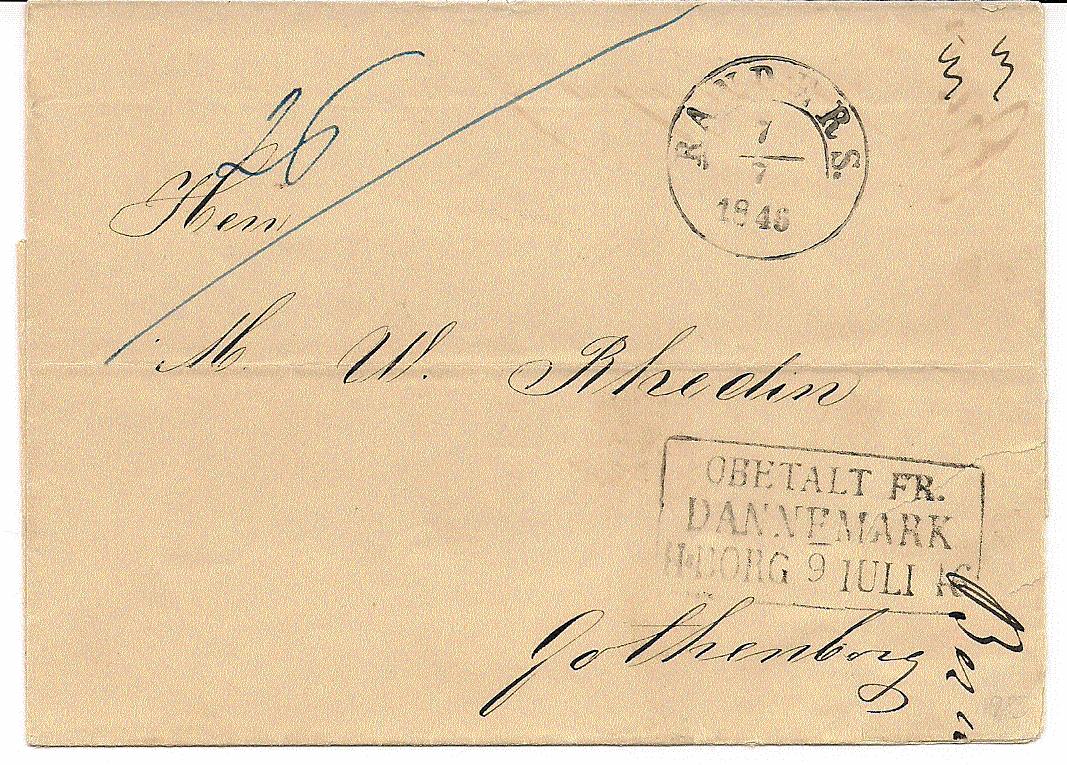 26
RANDERS.
7
7
1846
Herr
M. W. Rhedin
OBETALT FR.
DANNEMARK
H·BORG 9 IULI 46
Gothenborg